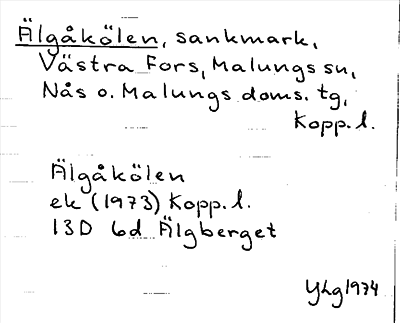 Älgåkölen, sankmark,
Västra Fors, Malungs sn,
Nås o. Malungs doms. tg,
Kopp. l.
Älgåkölen
ek (1973) Kopp. l.
13D 6d Älgberget
YLg 1974